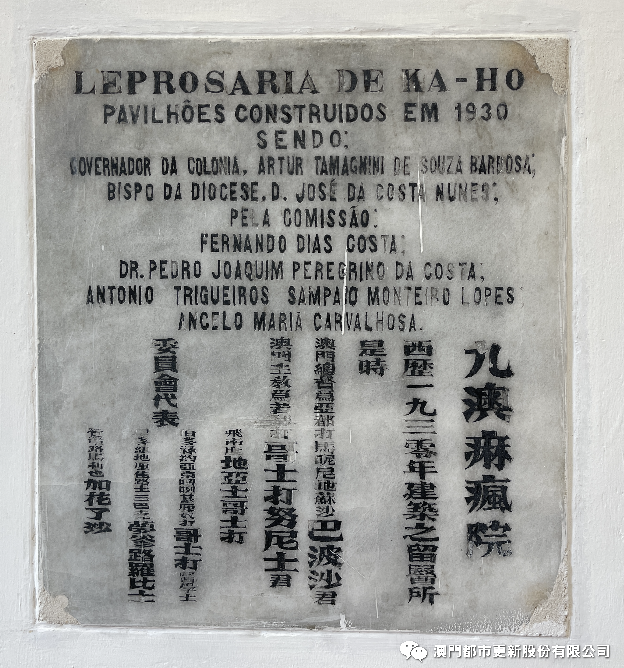 LEPROSARIA DE KA-HO
PAVILHÕES CONSTRUIDOS EM 1930
SENDO;
GOVERNADOR DA COLONIA, ARTUR TAMAGNINI DE SOUZA BARBOSA;
BISPO DA DIOCESE, D. JOSÉ DA COSTA NUNES;
PELA COMISSÃO;
FERNANDO DIAS COSTA;
DR. PEDRO JOAQUIM PEREGRINO DA COSTA;
ANTONIO TRIGUEIROS SAMPAIO MONTEIRO LOPES
ANGELO MARIA CARVALHOSA.
九澳痳瘋院
西歷一九三零年建築之留醫所
是時
澳門總督為亞都打馬呢尼地蘇沙巴波沙君
澳門主教為若打哥士打努尼士君
委員會代表
飛南度地亞士哥士打
哥士打
路羅比士
加花了沙
澳門都市更新股份有限公司